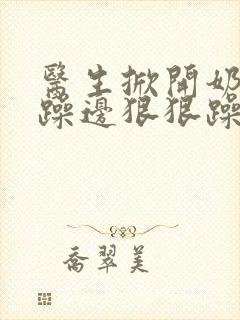 醫生掀開奶
躁邊狠狠躁
喬翠美